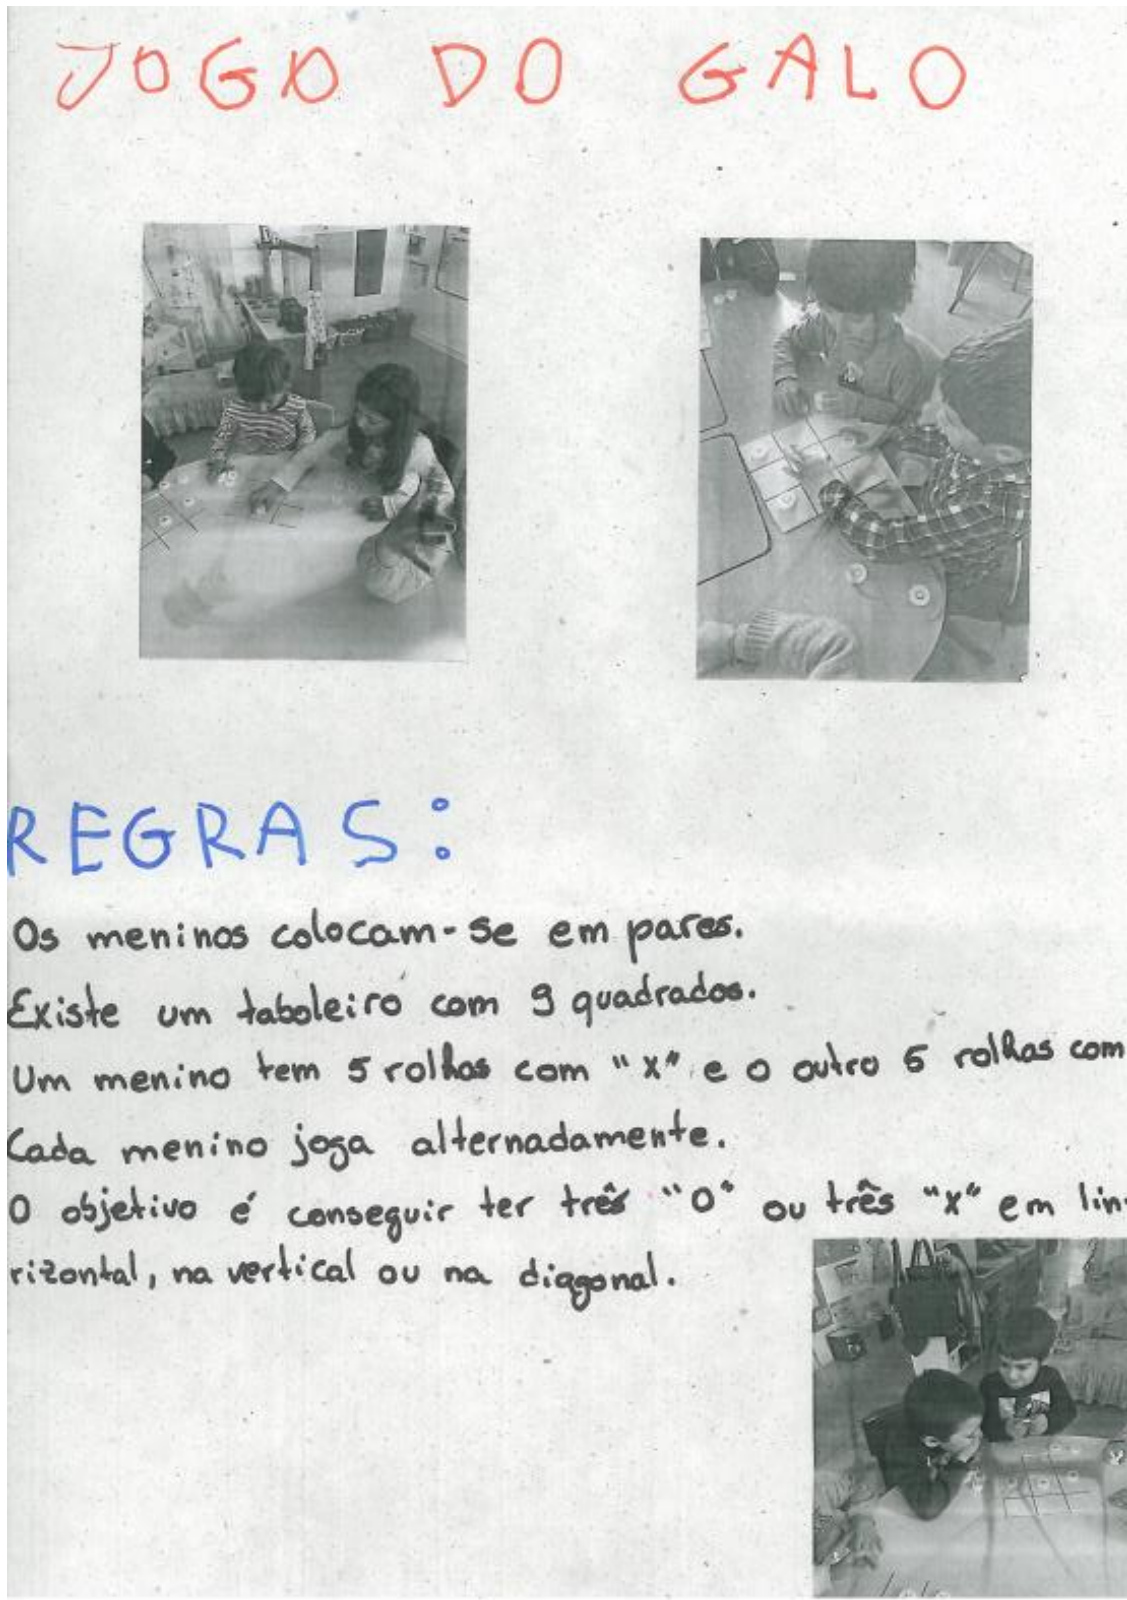 JOGO DO GALO
REGRAS:
Os meninos colocam-se em pares.
Existe um taboleiro com 9 quadrados.
Um menino tem 5 rolhas com "x" e o outro 5 rolhas com
Cada menino joga alternadamente.
O objetivo é conseguir ter três "O" ou três "x" em lin
rizontal, na vertical ou na diagonal.